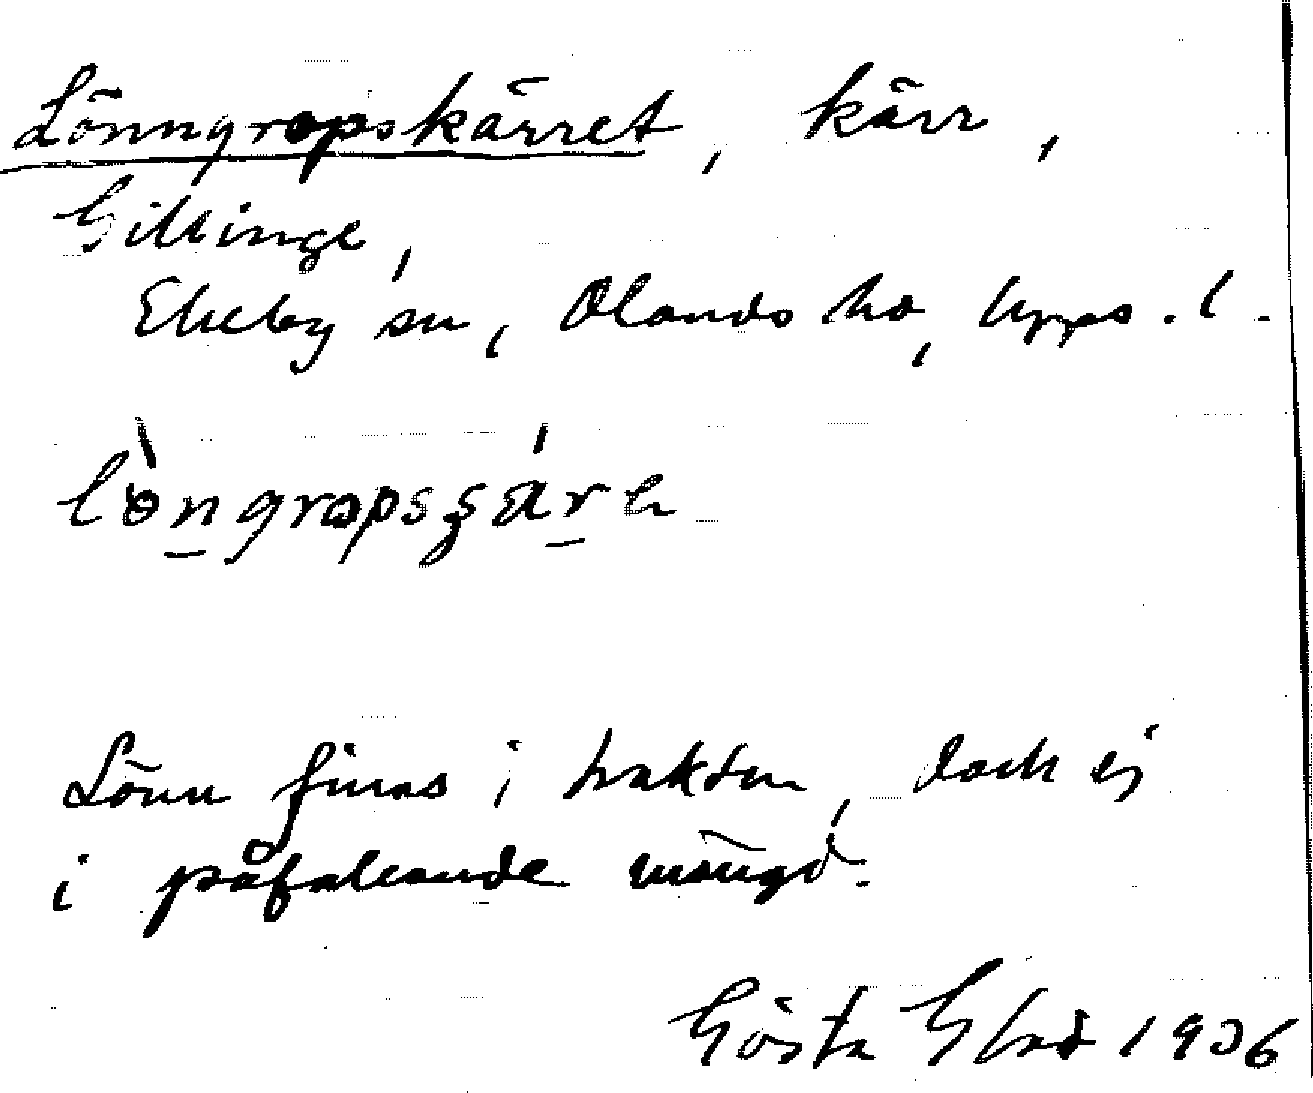 Lönngropskärret, kärr,
Gillinge,
Ekeby sn, Olands hd, Upps. l.
lòngropsgárh
Lönn finns i trakten, dock ej
i påfallande mängd.
Gösta Glad 1936